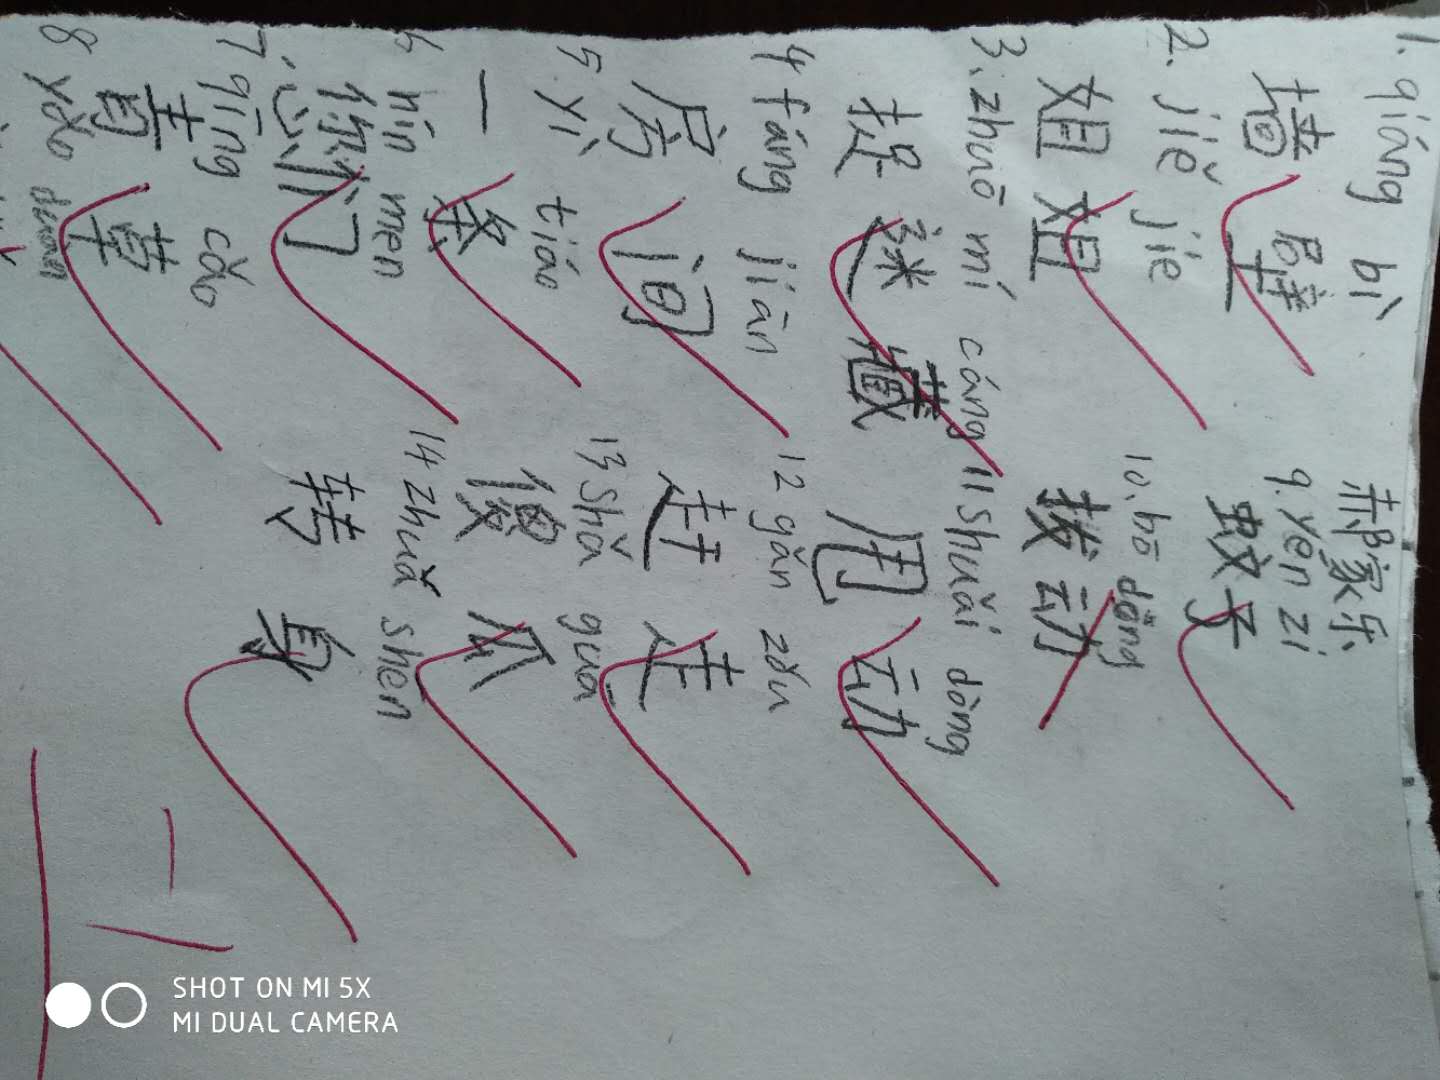 郝家乐
1. qiáng bì
墙壁
2. jiě jie
姐姐
3. zhuō mí cáng
捉迷藏
4 fáng jiān
房间
5. yì tiáo
一条
6. nín men
您们
7. qīng cǎo
青草
8 yǎo duàn
9. yen zi
蚊子
10. bō dòng
拨动
11 shuǎi dòng
甩动
12 gǎn zǒu
赶走
13 shǎ guā
傻瓜
14 zhuǎ shen
转身
SHOT ON MI 5X
MI DUAL CAMERA